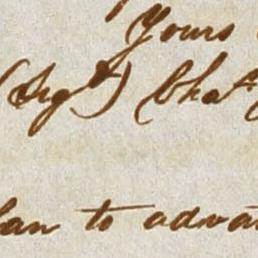 Yours
(Sigd) Chas
an to advan